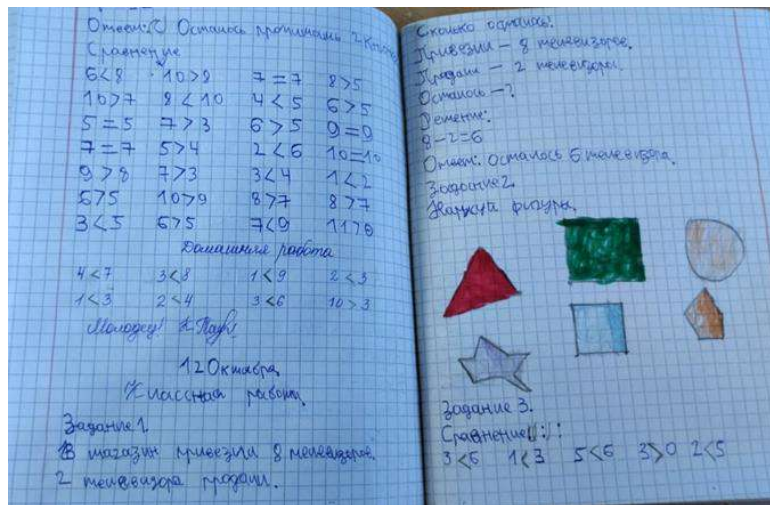 Ответ: Осталось прочитать 2 книги
Сравнение
6<8 10>9 7=7 8>5
10>7 8<10 4<5 6>5
5=5 7>3 6>5 9=9
7=7 5>4 2<6 10=10
9>8 7>3 3<4 1<2
6>5 10>9 8>7 8>7
3<5 6>5 7<9 11>0
Домашняя работа
4<7 3<8 1<9 2<3
1<3 2<4 3<6 10>3
Молодец!
12 Октября.
Классная работа.
Задание 1.
В магазин привезли 8 телевизоров.
2 телевизора продали.
Сколько осталось?
Привезли – 8 телевизоров.
Продали – 2 телевизора.
Осталось – ?
Решение:
8-2=6
Ответ: осталось 6 телевизора.
Задание 2.
Нарисуй фигуры.
Задание 3.
Сравнение
3<6 1<3 5<6 3>0 2<5